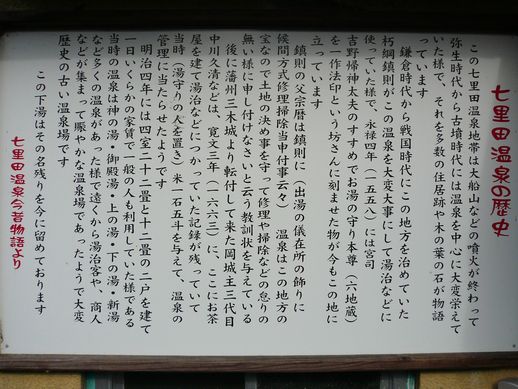 七里田温泉の歴史
この七里田温泉地帯は大船山などの噴火が終わって
弥生時代から古墳時代には温泉を中心に大変栄えて
いた様で、それを多数の住居跡や木の葉の石が物語
っています
鎌倉時代から戦国時代にこの地方を治めていた
朽綱鎮則がこの温泉を大変大事にして湯治などに
使っていた様で、永禄四年(一五五八)には宮司
吉野帰神太夫のすすめでお湯の守り本尊(六地蔵)
を一作法印という坊さんに刻ませた物が今もこの地に
立っています
鎮則の父宗暦は鎮則に(出湯の儀在所の飾りに
候間方式修理掃除当申付事云々)温泉はこの地方の
宝なので土地の決め事を守って修理や掃除などの怠りの
無い様に申し付けなさいと云う教訓状を与えている
後に藩州三木城より転付して来た岡城主三代目
中川久清などは、寛文三年(一六六三)に、ここにお茶
屋を建て湯治などにつかっていた記録が残っていて
当時(湯守りの人を置き)米一石五斗を与えて、温泉の
管理に当たらせたようです
明治四年には四室二十二畳と十二畳の二戸を建て
一日いくらかの家賃で一般の人も利用していた様である
当時の温泉は神の湯・御殿湯・上の湯・下の湯・新湯
など多くの温泉があった様で遠くから湯治客や、商人
などが集まって賑やかな温泉場であったようで大変
歴史の古い温泉場です
この下湯はその名残りを今に留めております
七里田温泉今昔物語より